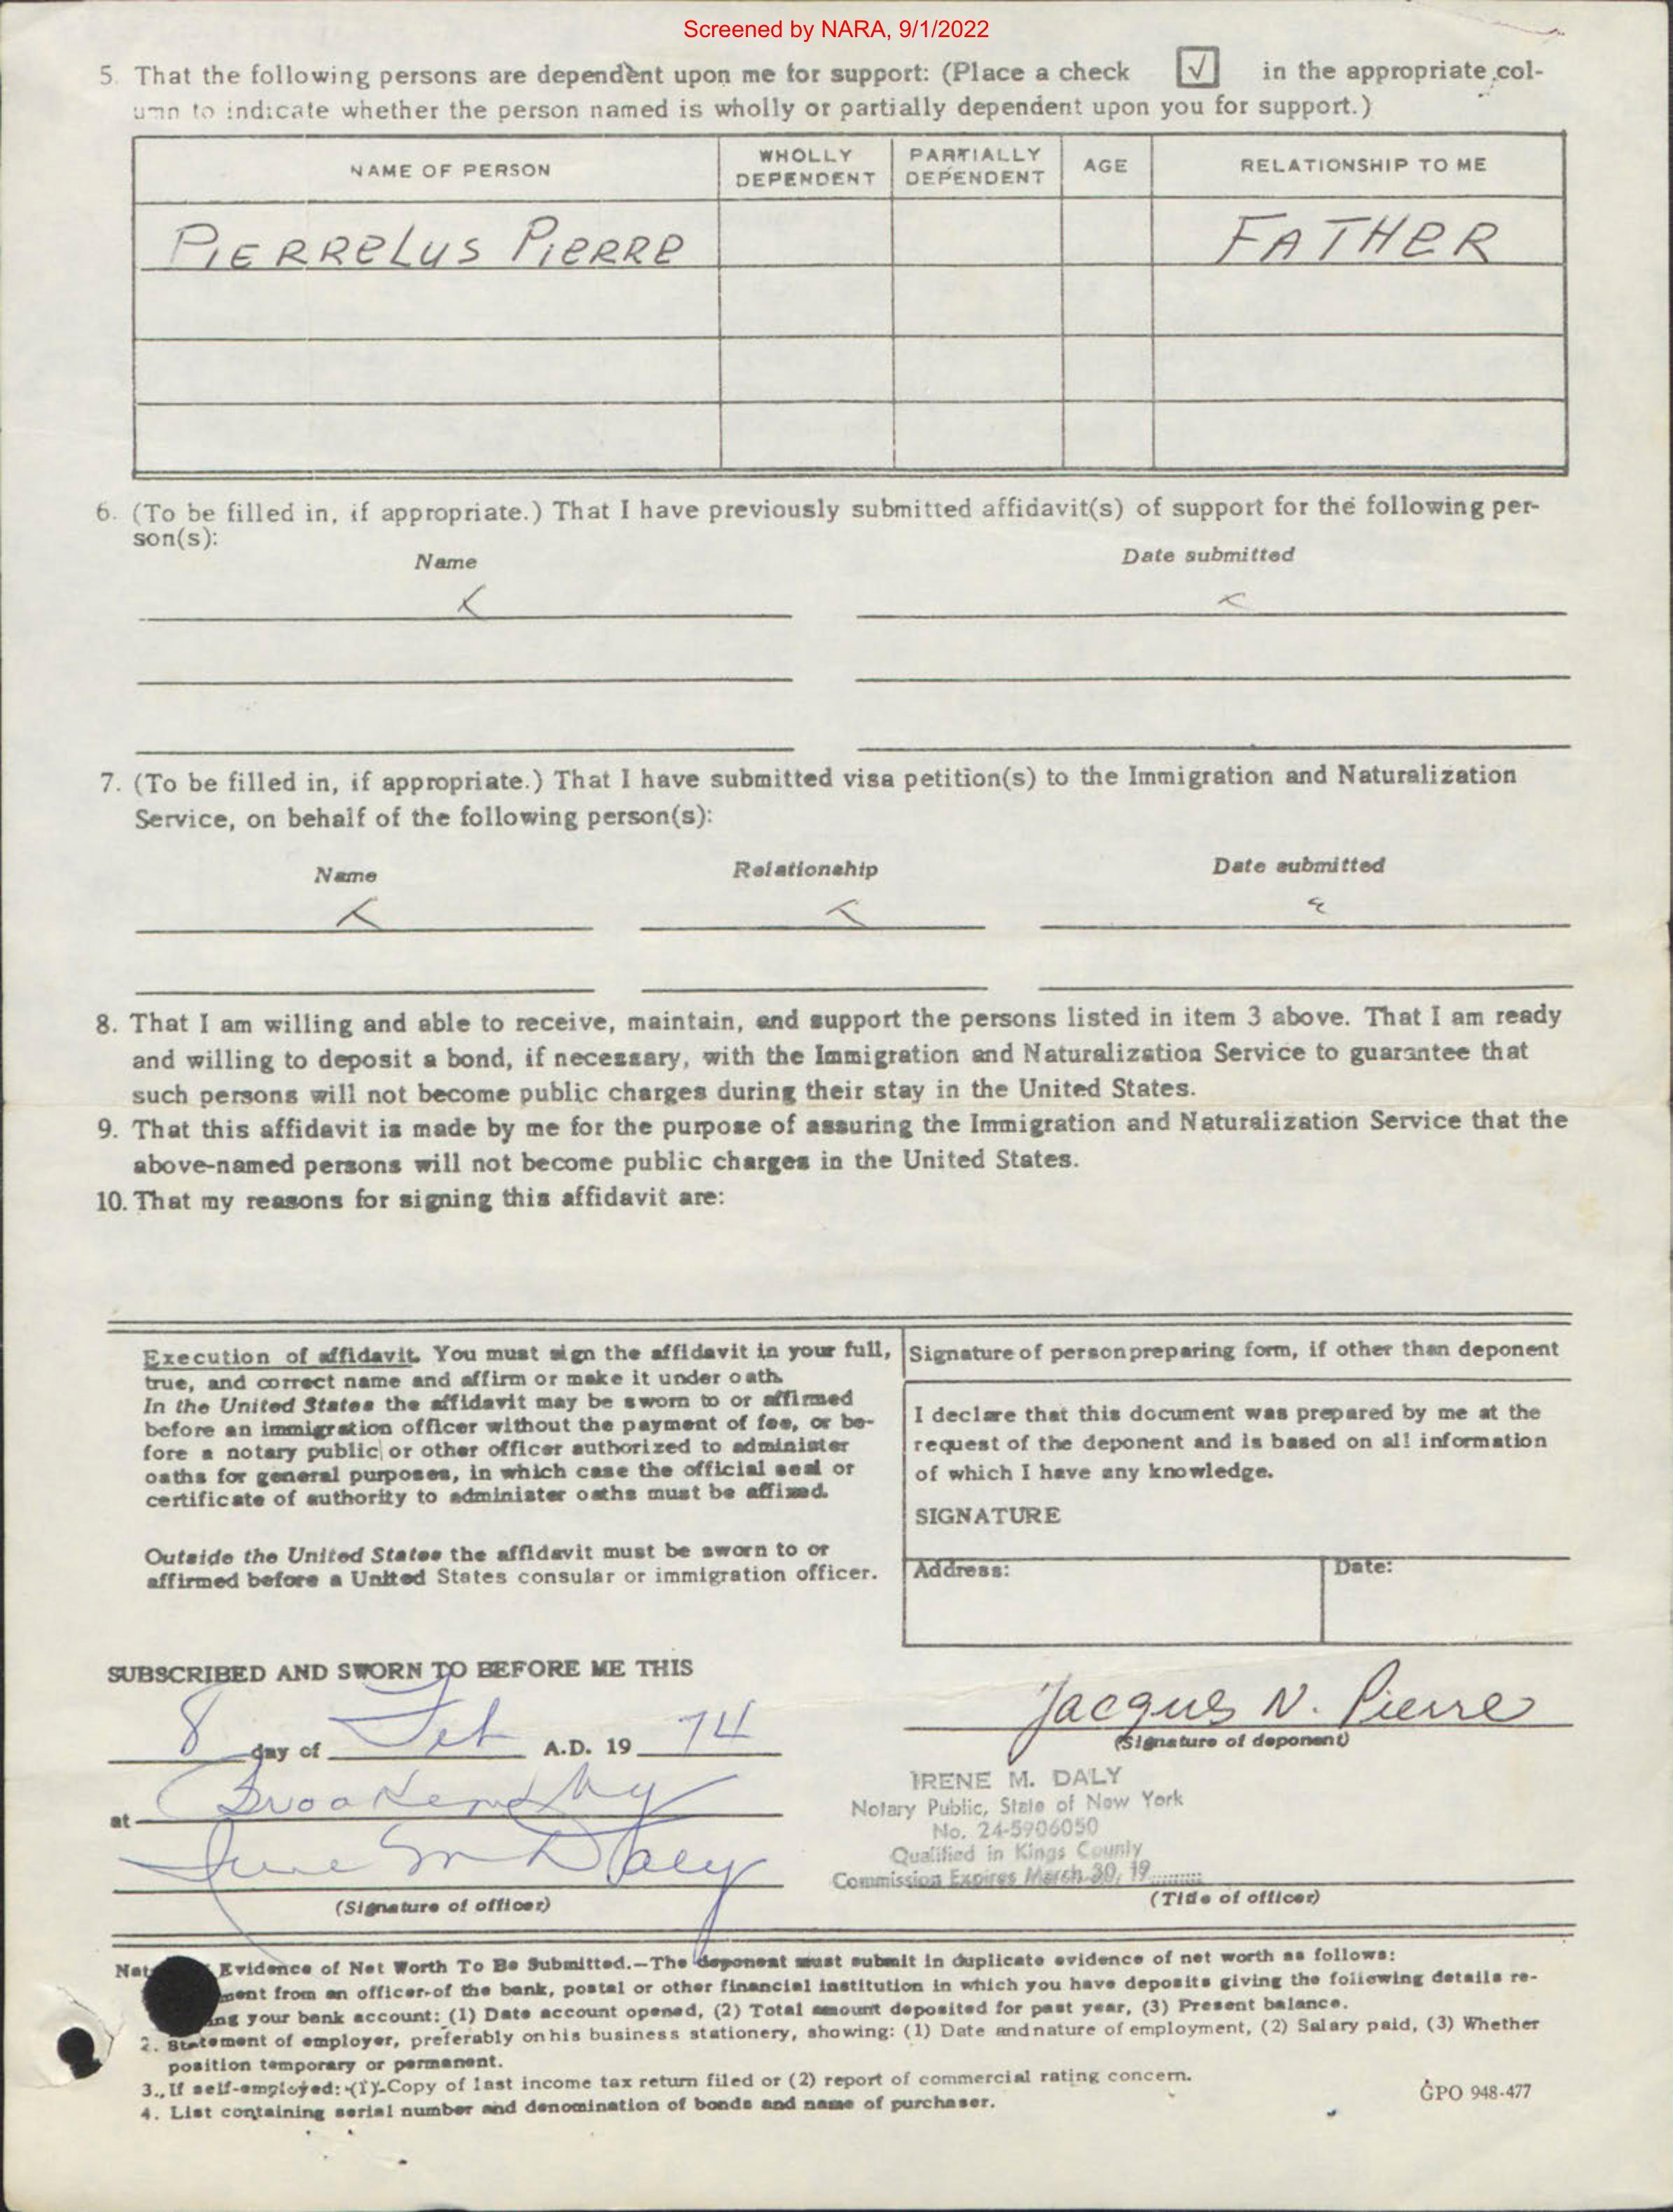 Screened by NARA, 9/1/2022
5. That the following persons are dependent upon me for support: (Place a check √ in the appropriate col-
umn to indicate whether the person named is wholly or partially dependent upon you for support.)
NAME OF PERSON WHOLLY DEPENDENT PARTIALLY DEPENDENT AGE RELATIONSHIP TO ME
PIERRELUS PIERRE FATHER
6. (To be filled in, if appropriate.) That I have previously submitted affidavit(s) of support for the following per-
son(s):
Name Date submitted
7. (To be filled in, if appropriate.) That I have submitted visa petition(s) to the Immigration and Naturalization
Service, on behalf of the following person(s):
Name Relationship Date submitted
8. That I am willing and able to receive, maintain, and support the persons listed in item 3 above. That I am ready
and willing to deposit a bond, if necessary, with the Immigration and Naturalization Service to guarantee that
such persons will not become public charges during their stay in the United States.
9. That this affidavit is made by me for the purpose of assuring the Immigration and Naturalization Service that the
above-named persons will not become public charges in the United States.
10. That my reasons for signing this affidavit are:
Execution of affidavit. You must sign the affidavit in your full,
true, and correct name and affirm or make it under oath.
In the United States the affidavit may be sworn to or affirmed
before an immigration officer without the payment of fee, or be-
fore a notary public or other officer authorized to administer
oaths for general purposes, in which case the official seal or
certificate of authority to administer oaths must be affixed.
Outside the United States the affidavit must be sworn to or
affirmed before a United States consular or immigration officer.
Signature of person preparing form, if other than deponent
I declare that this document was prepared by me at the
request of the deponent and is based on all information
of which I have any knowledge.
SIGNATURE
Address: Date:
SUBSCRIBED AND SWORN TO BEFORE ME THIS
8 day of Feb A.D. 19 74
Jacques N. Pierre
(Signature of deponent)
at Brooklyn NY
Irene M Daly
(Signature of officer)
IRENE M. DALY
Notary Public, State of New York
No. 24-5906050
Qualified in Kings County
Commission Expires March 30, 19
(Title of officer)
Evidence of Net Worth To Be Submitted.—The deponent must submit in duplicate evidence of net worth as follows:
from an officer of the bank, postal or other financial institution in which you have deposits giving the following details re-
your bank account: (1) Date account opened, (2) Total amount deposited for past year, (3) Present balance.
2. Statement of employer, preferably on his business stationery, showing: (1) Date and nature of employment, (2) Salary paid, (3) Whether
position temporary or permanent.
3. If self-employed: (1) Copy of last income tax return filed or (2) report of commercial rating concern.
4. List containing serial number and denomination of bonds and name of purchaser.
GPO 948-477